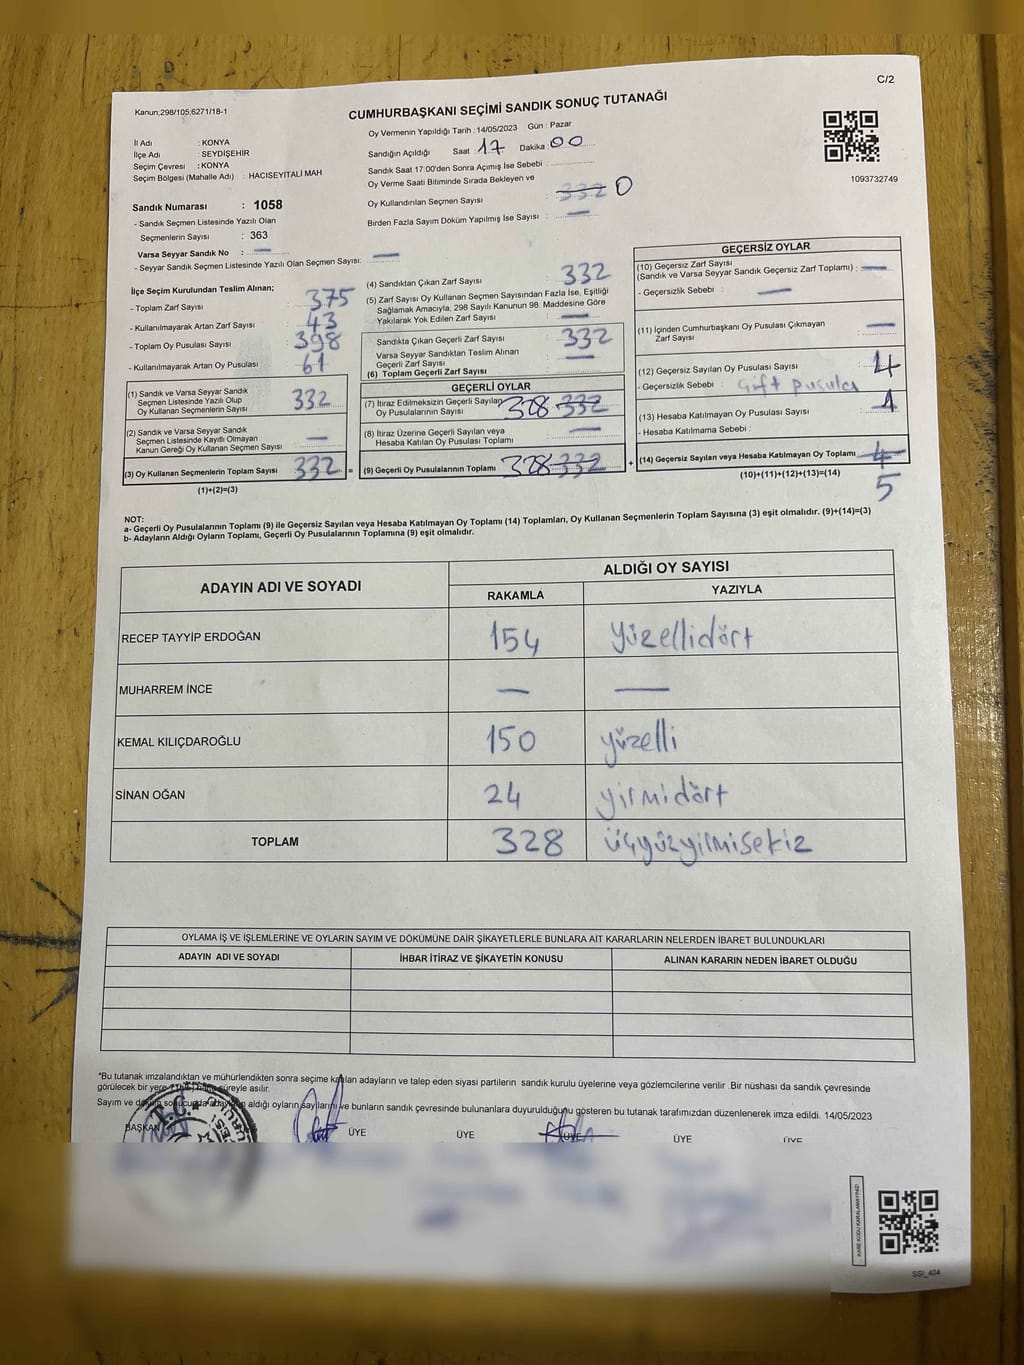 C/2
Kanun;298/105;6271/18-1
CUMHURBAŞKANI SEÇİMİ SANDIK SONUÇ TUTANAĞI
Oy Vermenin Yapıldığı Tarih : 14/05/2023 Gün : Pazar
İl Adı : KONYA
İlçe Adı : SEYDİŞEHİR
Seçim Çevresi : KONYA
Seçim Bölgesi (Mahalle Adı) : HACISEYİTALİ MAH
Sandığın Açıldığı Saat : 17 Dakika : 00
Sandık Saat 17:00'den Sonra Açımış İse Sebebi :
Oy Verme Saati Bitiminde Sırada Bekleyen ve
Oy Kullandırılan Seçmen Sayısı : 332 0
Birden Fazla Sayım Döküm Yapılmış İse Sayısı : —
1093732749
Sandık Numarası : 1058
- Sandık Seçmen Listesinde Yazılı Olan
Seçmenlerin Sayısı : 363
Varsa Seyyar Sandık No : —
- Seyyar Sandık Seçmen Listesinde Yazılı Olan Seçmen Sayısı: —
İlçe Seçim Kurulundan Teslim Alınan;
- Toplam Zarf Sayısı : 375
- Kullanılmayarak Artan Zarf Sayısı : 43
- Toplam Oy Pusulası Sayısı : 398
- Kullanılmayarak Artan Oy Pusulası : 61
(1) Sandık ve Varsa Seyyar Sandık
Seçmen Listesinde Yazılı Olup
Oy Kullanan Seçmenlerin Sayısı : 332
(2) Sandık ve Varsa Seyyar Sandık
Seçmen Listesinde Kayıtlı Olmayan
Kanun Gereği Oy Kullanan Seçmen Sayısı : —
(3) Oy Kullanan Seçmenlerin Toplam Sayısı : 332 =
(1)+(2)=(3)
(4) Sandıktan Çıkan Zarf Sayısı : 332
(5) Zarf Sayısı Oy Kullanan Seçmen Sayısından Fazla İse, Eşitliği
Sağlamak Amacıyla, 298 Sayılı Kanunun 98. Maddesine Göre
Yakılarak Yok Edilen Zarf Sayısı : —
Sandıkta Çıkan Geçerli Zarf Sayısı : 332
Varsa Seyyar Sandıktan Teslim Alınan
Geçerli Zarf Sayısı : —
(6) Toplam Geçerli Zarf Sayısı
GEÇERLİ OYLAR
(7) İtiraz Edilmeksizin Geçerli Sayılan
Oy Pusulalarının Sayısı : 328 332
(8) İtiraz Üzerine Geçerli Sayılan veya
Hesaba Katılan Oy Pusulası Toplamı : —
(9) Geçerli Oy Pusulalarının Toplamı : 328 332 +
GEÇERSİZ OYLAR
(10) Geçersiz Zarf Sayısı
(Sandık ve Varsa Seyyar Sandık Geçersiz Zarf Toplamı) : —
- Geçersizlik Sebebi : —
(11) İçinden Cumhurbaşkanı Oy Pusulası Çıkmayan
Zarf Sayısı : —
(12) Geçersiz Sayılan Oy Pusulası Sayısı : 4
- Geçersizlik Sebebi : Çift pusula
(13) Hesaba Katılmayan Oy Pusulası Sayısı : 1
- Hesaba Katılmama Sebebi :
(14) Geçersiz Sayılan veya Hesaba Katılmayan Oy Toplamı : 4
(10)+(11)+(12)+(13)=(14)
5
NOT:
a- Geçerli Oy Pusulalarının Toplamı (9) ile Geçersiz Sayılan veya Hesaba Katılmayan Oy Toplamı (14) Toplamları, Oy Kullanan Seçmenlerin Toplam Sayısına (3) eşit olmalıdır. (9)+(14)=(3)
b- Adayların Aldığı Oyların Toplamı, Geçerli Oy Pusulalarının Toplamına (9) eşit olmalıdır.
ADAYIN ADI VE SOYADI ALDIĞI OY SAYISI
RAKAMLA YAZIYLA
RECEP TAYYİP ERDOĞAN 154 yüzellidört
MUHARREM İNCE — —
KEMAL KILIÇDAROĞLU 150 yüzelli
SİNAN OĞAN 24 yirmidört
TOPLAM 328 üçyüzyirmisekiz
OYLAMA İŞ VE İŞLEMLERİNE VE OYLARIN SAYIM VE DÖKÜMÜNE DAİR ŞİKAYETLERLE BUNLARA AİT KARARLARIN NELERDEN İBARET BULUNDUKLARI
ADAYIN ADI VE SOYADI İHBAR İTİRAZ VE ŞİKAYETİN KONUSU ALINAN KARARIN NEDEN İBARET OLDUĞU
*Bu tutanak imzalandıktan ve mühürlendikten sonra seçime katılan adayların ve talep eden siyasi partilerin sandık kurulu üyelerine veya gözlemcilerine verilir .Bir nüshası da sandık çevresinde
görülecek bir yere süreyle asılır.
Sayım ve döküm sonucunda adayların aldığı oyların sayılarını ve bunların sandık çevresinde bulunanlara duyurulduğunu gösteren bu tutanak tarafımızdan düzenlenerek imza edildi. 14/05/2023
BAŞKAN ÜYE ÜYE ÜYE ÜYE ÜYE
T.C.
KARE KODU KARALAMAYINIZ!
SSI_404